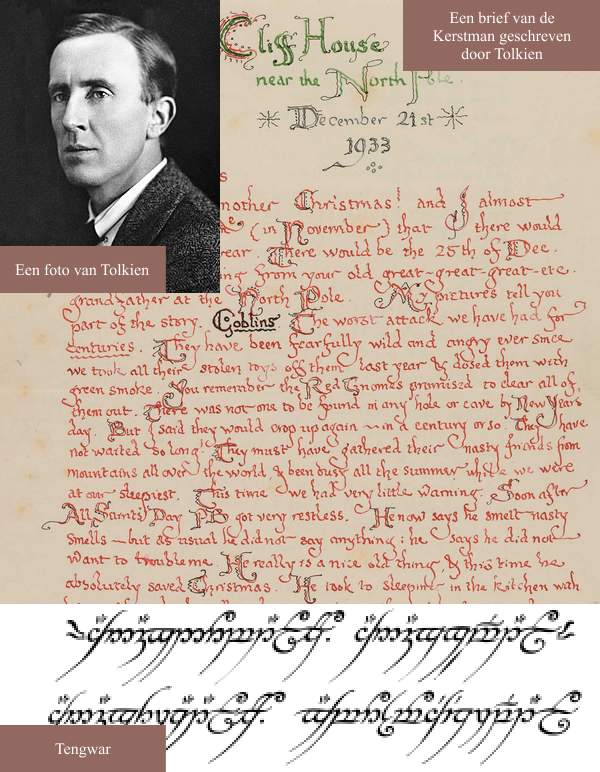 Een brief van de
Kerstman geschreven
door Tolkien
Cliff House
near the North Pole.
December 21st
1933
nother Christmas! and I almost
(in November) that there would
ear. There would be the 25th of Dec.
ing from your old great-great-great-etc.
Een foto van Tolkien
grandfather at the North Pole. My pictures tell you
part of the story. Goblins The worst attack we have had for
centuries. They have been fearfully wild and angry ever since
we took all their stolen toys off them last year & dosed them with
green smoke. You remember the Red Gnomes promised to clear all of
them out. There was not one to be found in any hole or cave by New Years
day. But I said they would crop up again — in a century or so. They have
not waited so long! They must have gathered their nasty friends from
mountains all over the world, & been busy all the summer while we were
at our sleepiest. This time we had very little warning. Soon after
All Saints' Day PB got very restless. He now says he smelt nasty
smells — but as usual he did not say anything: he says he did not
want to trouble me. He really is a nice old thing, & this time he
absolutely saved Christmas. He took to sleeping in the kitchen with
Tengwar